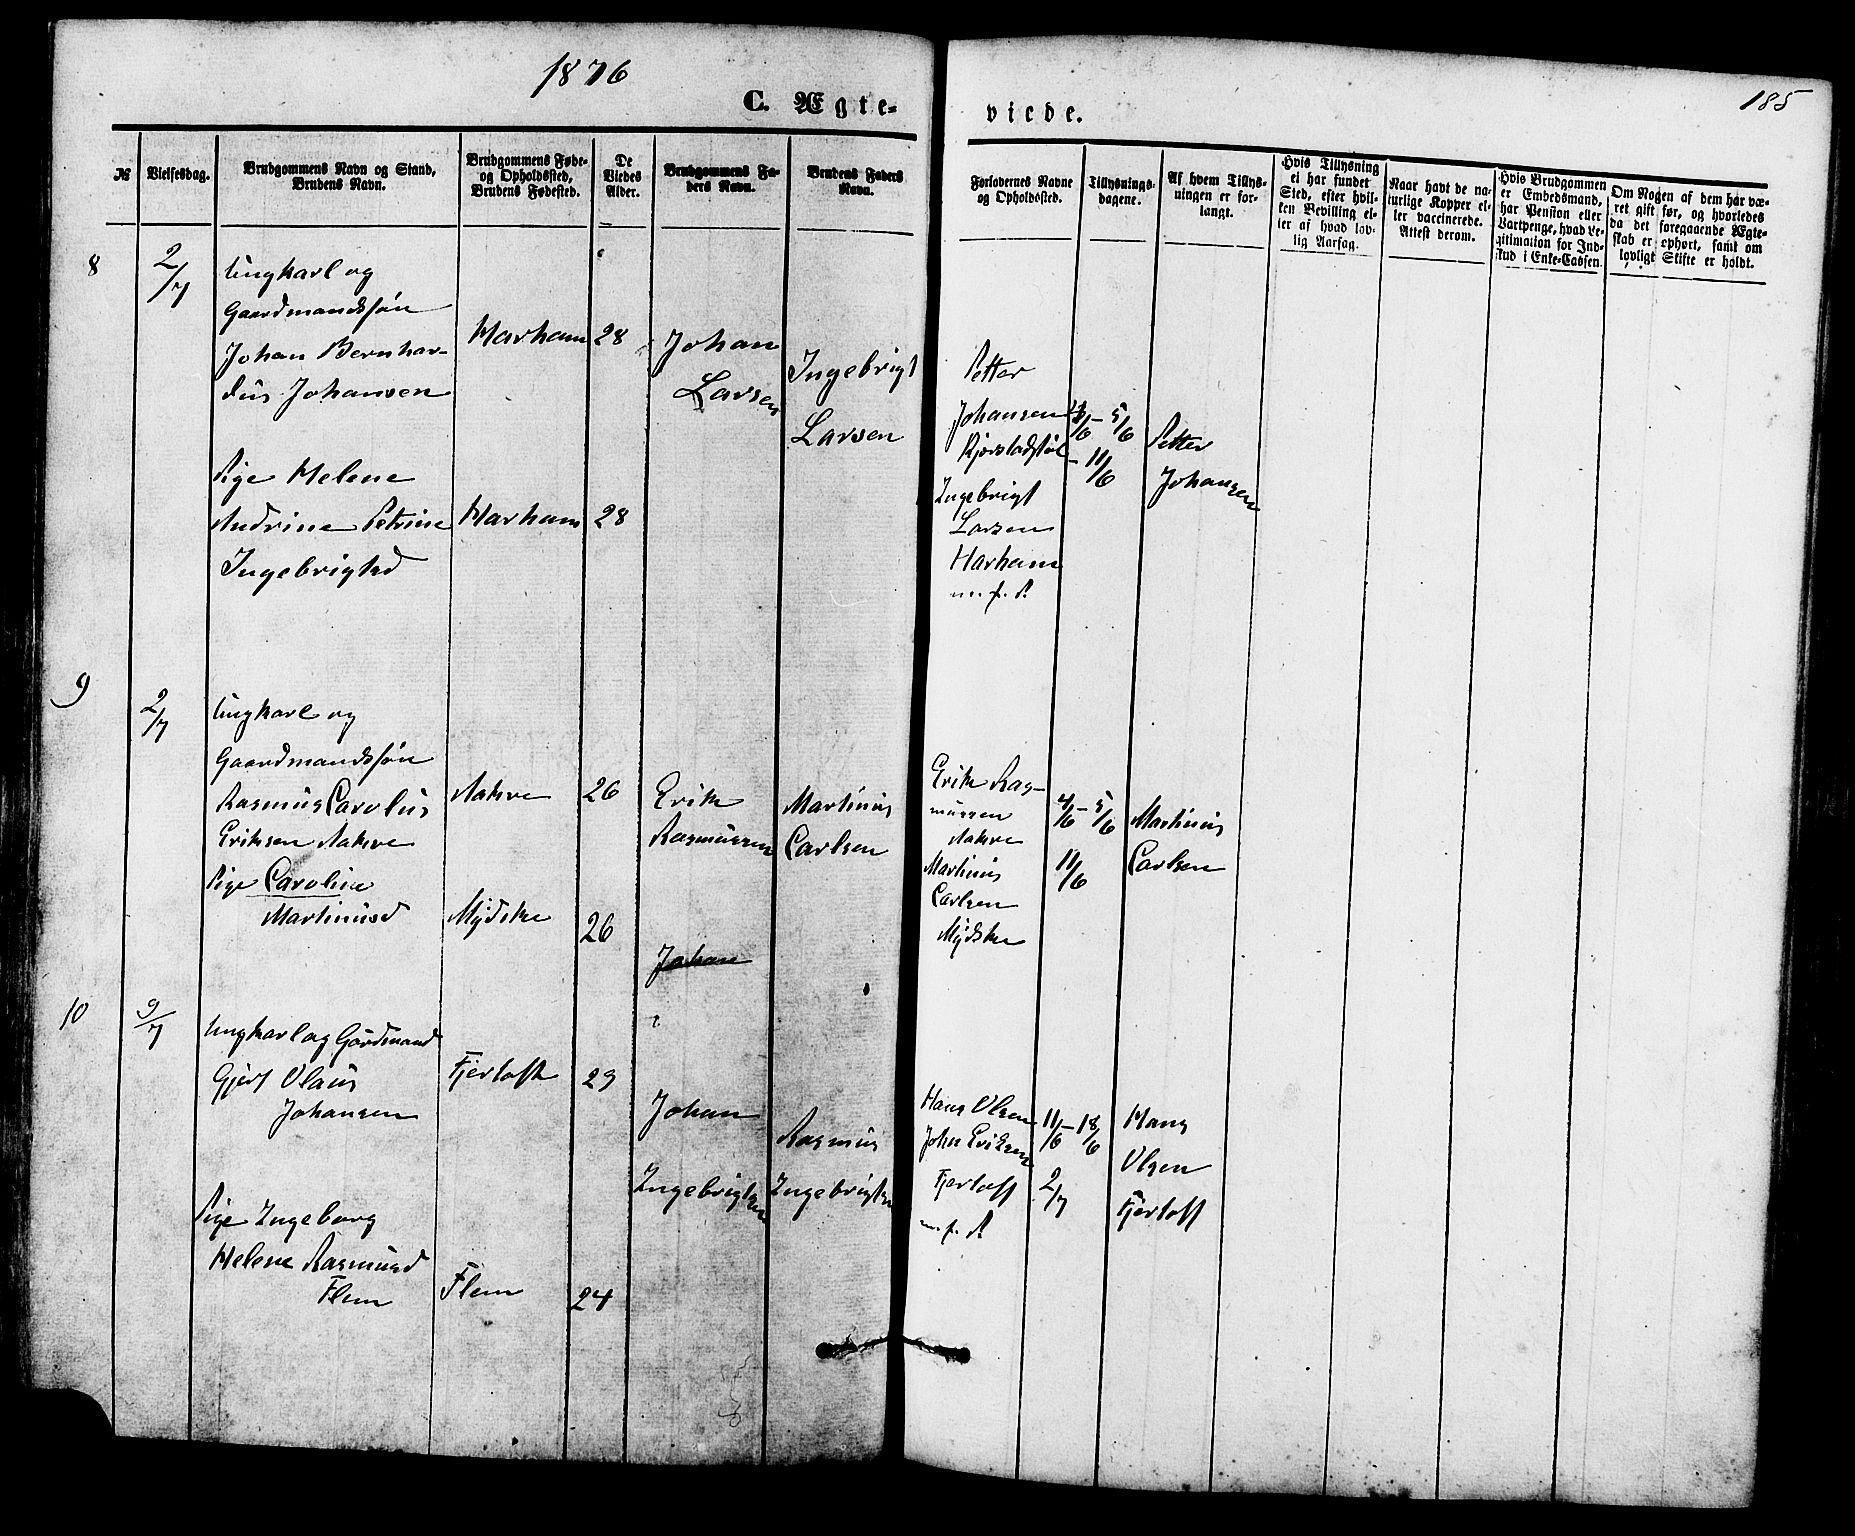 1876
185
C. Ægte-
viede.
№
Vielsesdag.
Brudgommens Navn og Stand,
Brudens Navn.
Brudgommens Føde-
og Opholdssted,
Brudens Fødested.
De
Viedes
Alder.
Brudgommens Fa-
ders Navn.
Brudens Faders
Navn.
Forlovernes Navne
og Opholdssted.
Tillysnings-
dagene.
Af hvem Tillys-
ningen er for-
langt.
Hvis Tillysning
ei har fundet
Sted, efter hvil-
ken Bevilling el-
ler af hvad lov-
lig Aarsag.
Naar havt de na-
turlige Kopper el-
ler vaccinerede.
Attest derom.
Hvis Brudgommen
er Embedsmand,
har Pension eller
Vartpenge, hvad Le-
gitimation for Ind-
skud i Enke-Cassen.
Om Nogen af dem har væ-
ret gift før, og hvorledes
da det foregaaende Ægte-
skab er ophørt, samt om
lovligt Skifte er holdt.
8
2/7
Ungkarl og
Gaardmandssøn
Johan Bernhar-
dus Johansen
Harham
28
Johan
Larsen
Ingebrigt
Larsen
Petter
Johansen
Ingebrigt
Larsen
Harham
5/6
11/6
Petter
Johansen
Pige Helene
Andrine Petrine
Ingebrigtsd
Harham
28
9
2/7
Ungkarl og
Gaardmandssøn
Rasmus Carolus
Eriksen Aakre
Aakre
26
Erik
Rasmussen
Martinus
Carlsen
Erik Ras-
mussen
Aakre
Martinus
Carlsen
Mydske
4/6 - 5/6
11/6
Martinus
Carlsen
Pige Caroline
Martinusd
Mydske
26
Johan
10
9/7
Ungkarl og Gårdmand
Gjert Olaus
Johansen
Fjertoft
29
Johan
Ingebrigtsen
Rasmus
Ingebrigtsen
Hans Olsen
John Eriksen
Fjertoft
11/6 - 18/6
2/7
Hans
Olsen
Fjertoft
Pige Ingeborg
Helene Rasmusd
Flem
Flem
24